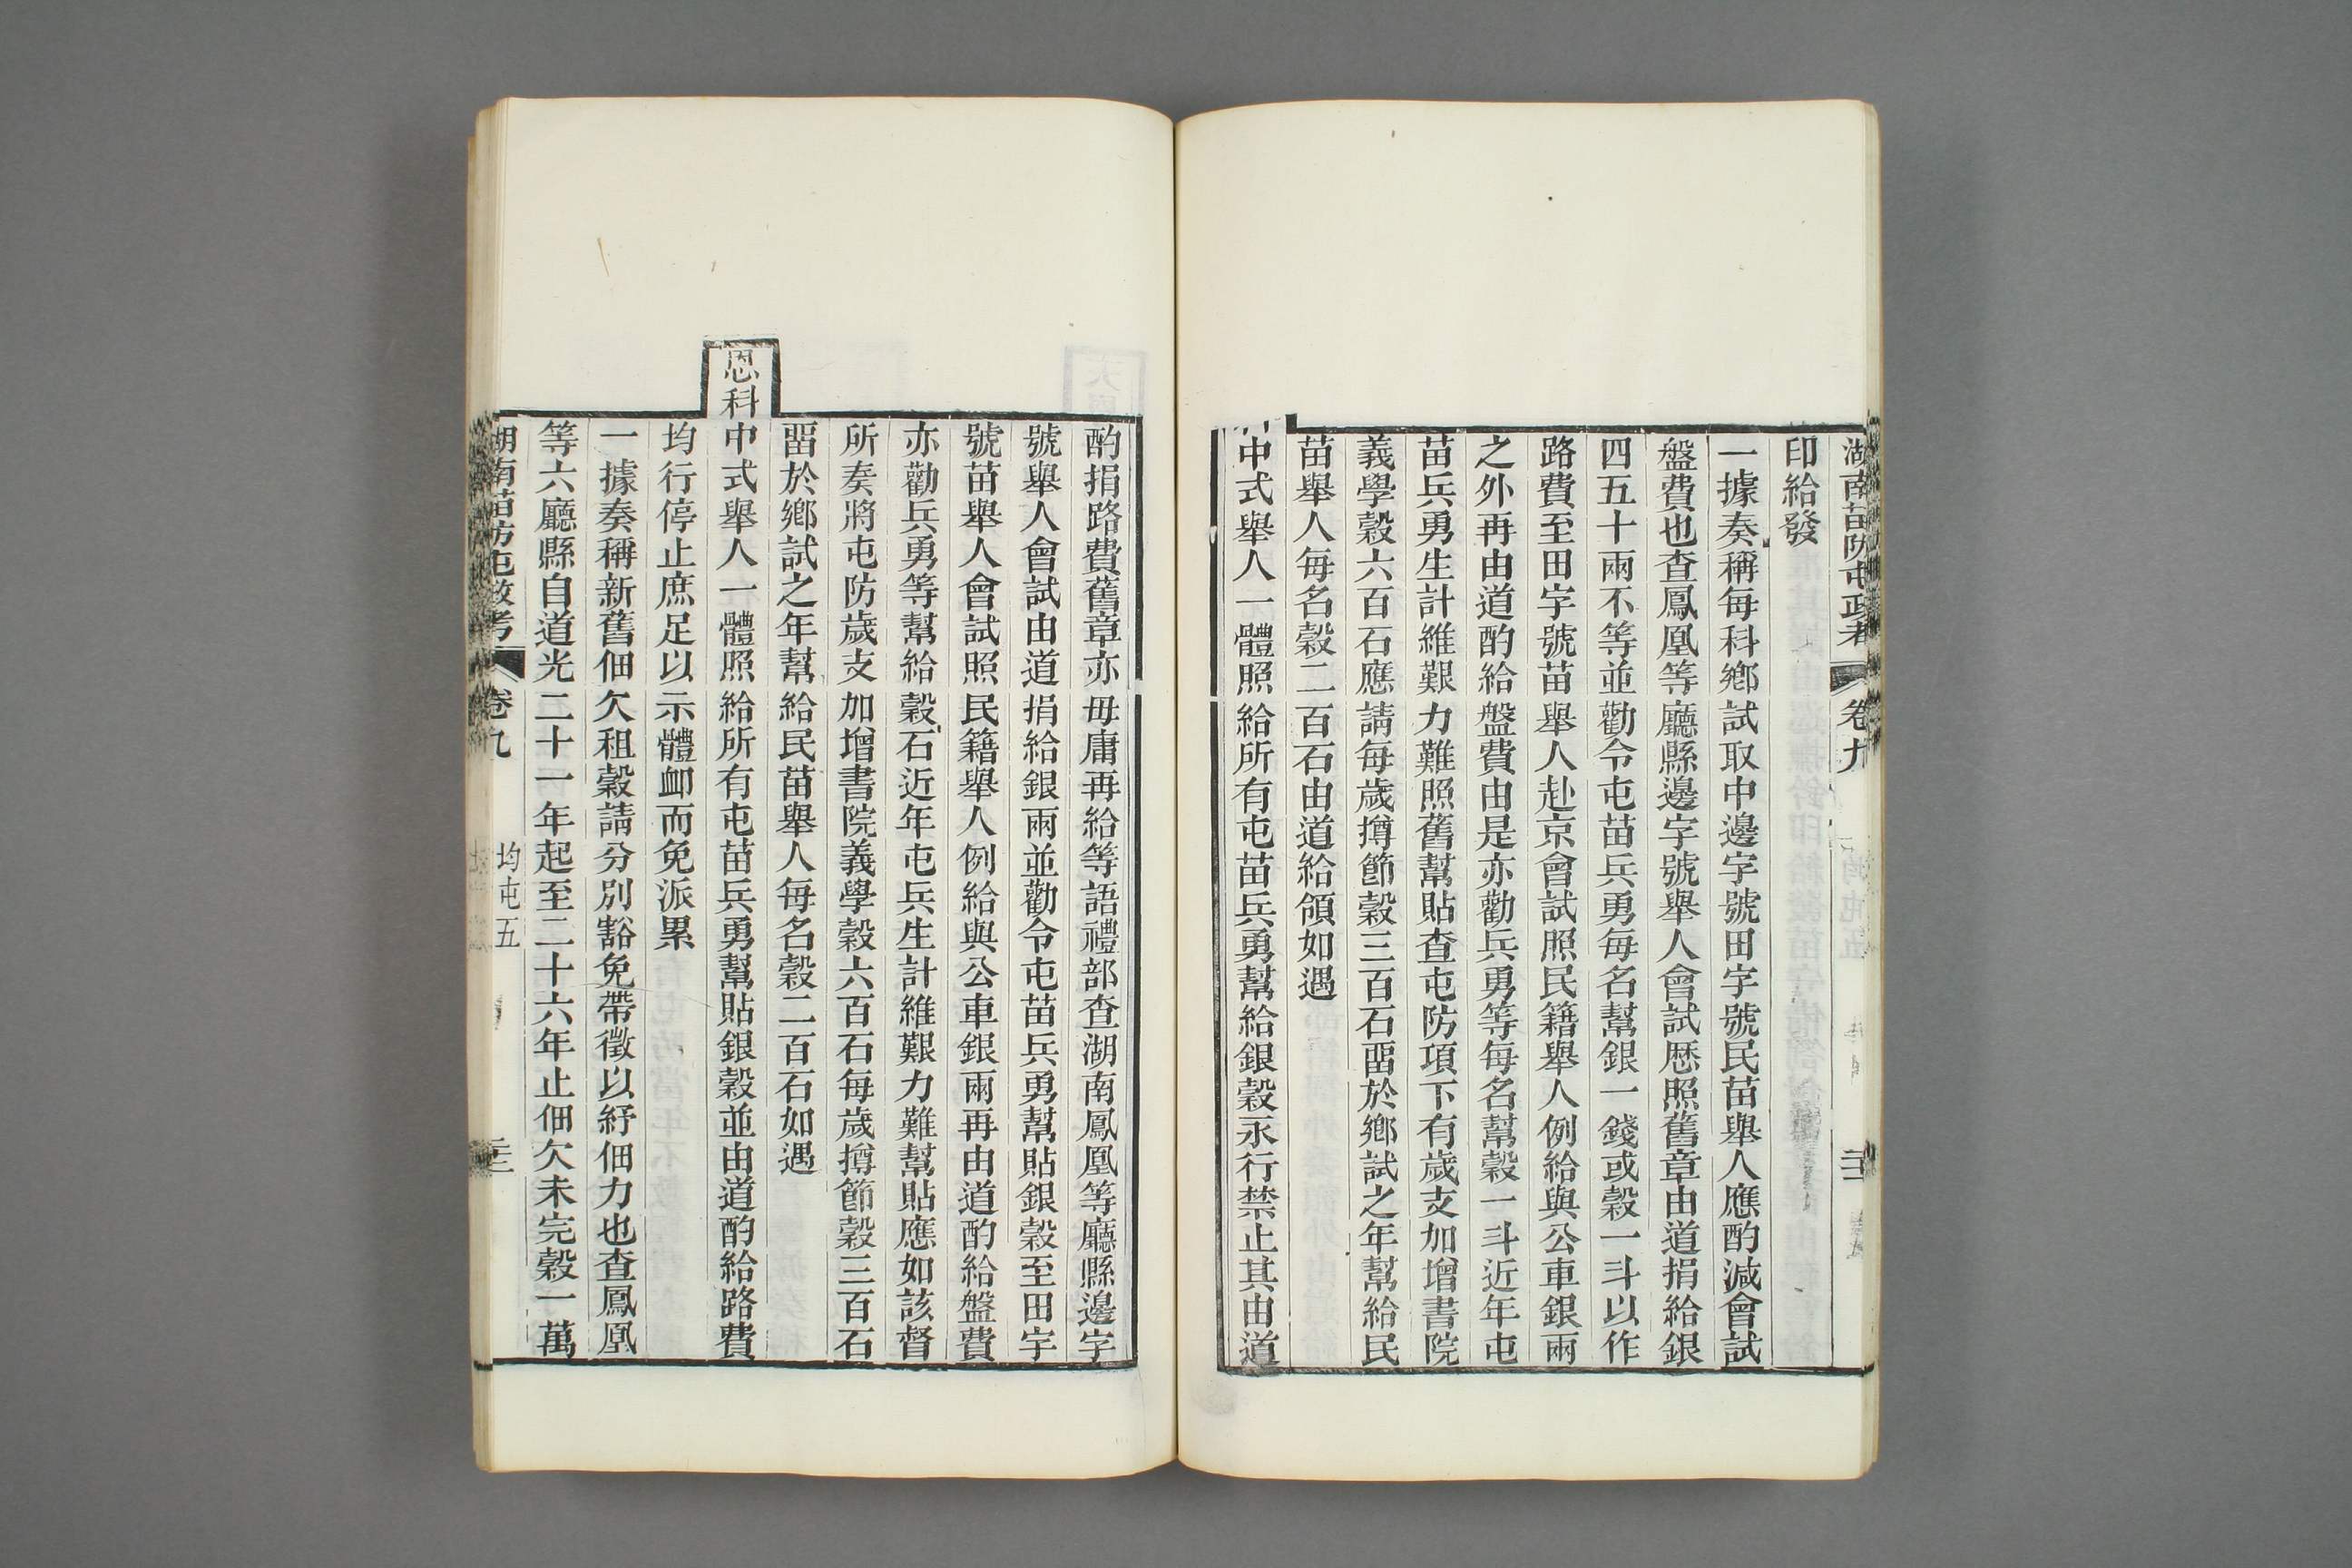 湖南苗防屯政考 卷九
印給發
一據奏稱每科鄉試取中邊字號田字號民苗舉人應酌減會試
盤費也查鳳凰等廳縣邊字號舉人會試歷照舊章由道捐給銀
四五十兩不等並勸令屯苗兵勇每名幫銀一錢或穀一斗以作
路費至田字號苗舉人赴京會試照民籍舉人例給與公車銀兩
之外再由道酌給盤費由是亦勸兵勇等每名幫穀一斗近年屯
苗兵勇生計維艱力難照舊幫貼查屯防項下有歲支加增書院
義學穀六百石應請每歲撙節穀三百石畱於鄉試之年幫給民
苗舉人每名穀二百石由道給領如遇
中式舉人一體照給所有屯苗兵勇幫給銀穀永行禁止其由道
酌捐路費舊章亦毋庸再給等語禮部查湖南鳳凰等廳縣邊字
號舉人會試由道捐給銀兩並勸令屯苗兵勇幫貼銀穀至田字
號苗舉人會試照民籍舉人例給與公車銀兩再由道酌給盤費
亦勸兵勇等幫給穀石近年屯兵生計維艱力難幫貼應如該督
所奏將屯防歲支加增書院義學穀六百石每歲撙節穀三百石
畱於鄉試之年幫給民苗舉人每名穀二百石如遇
恩科中式舉人一體照給所有屯苗兵勇幫貼銀穀並由道酌給路費
均行停止庶足以示體卹而免派累
一據奏稱新舊佃欠租穀請分別豁免帶徵以紓佃力也查鳳凰
等六廳縣自道光二十一年起至二十六年止佃欠未完穀一萬
湖南苗防屯政考 卷九 均屯五